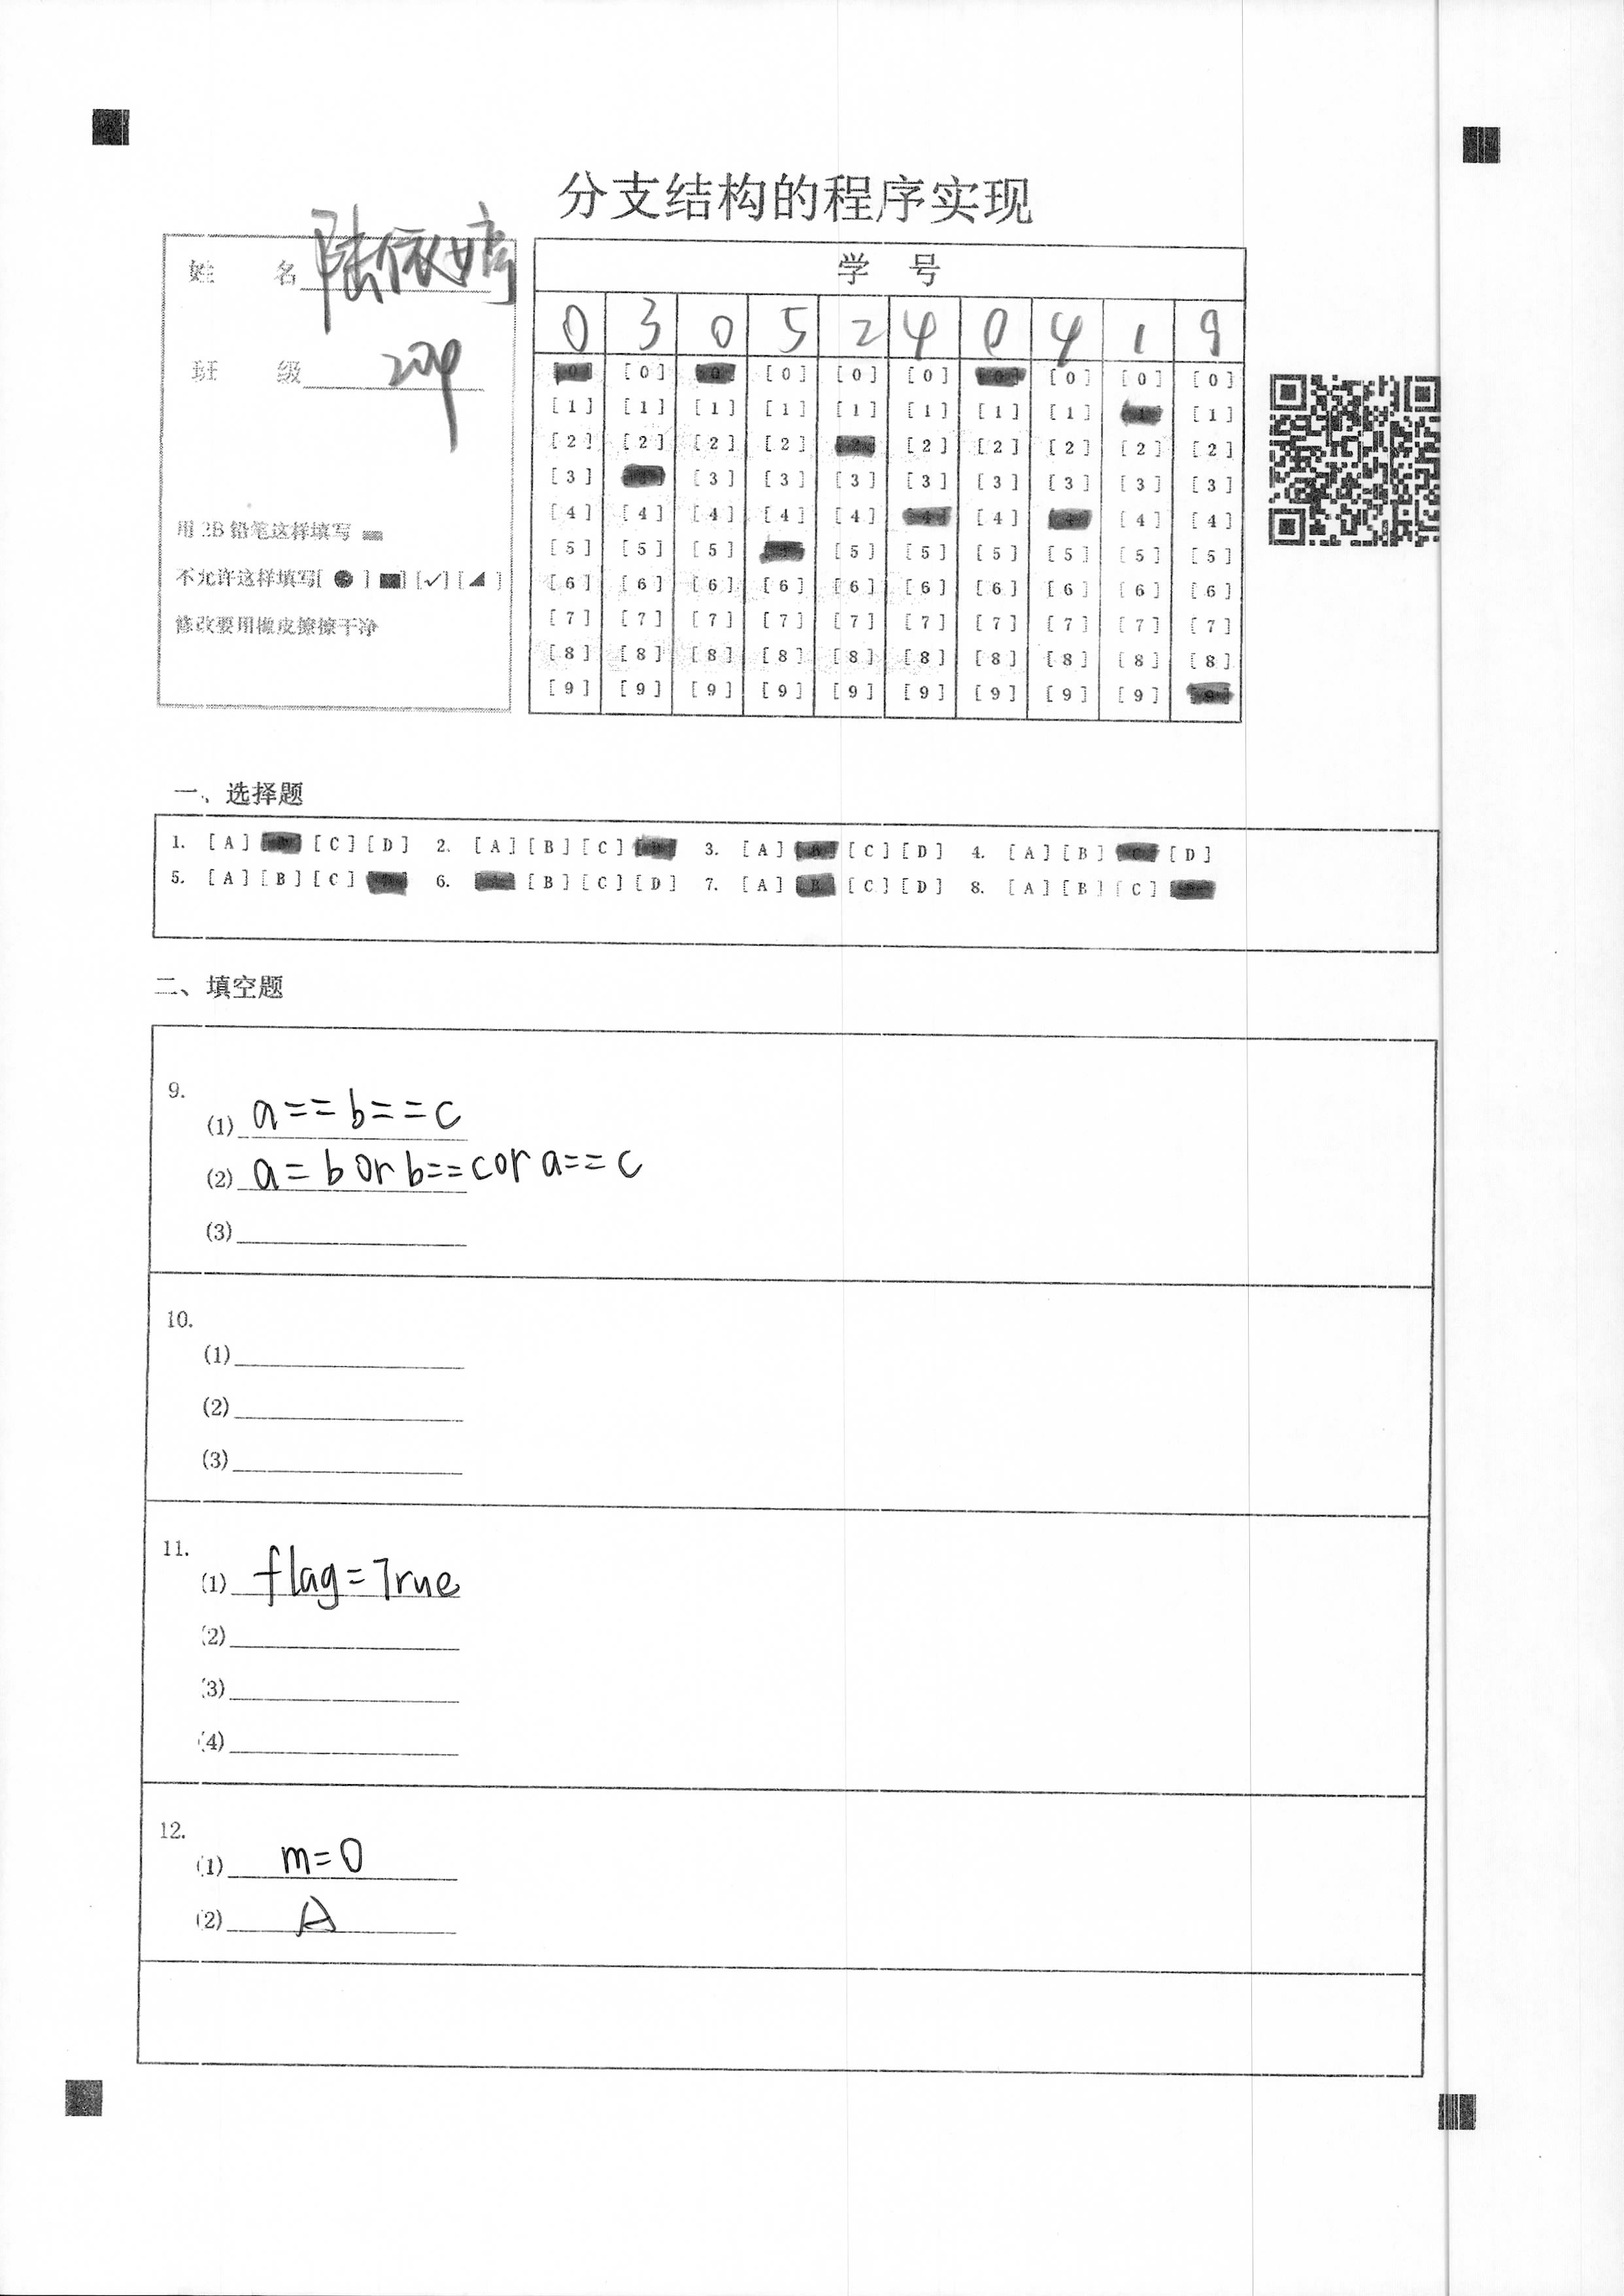 分支结构的程序实现
姓 名 陆依婷
班 级 204
用 2B 铅笔这样填写
不允许这样填写[ ● ] ■] [✓] [◢ ]
修改要用橡皮擦擦干净
学 号
0 3 0 5 2 4 0 4 1 9
[0] [0] [0] [0] [0] [0] [0] [0] [0] [0]
[1] [1] [1] [1] [1] [1] [1] [1] [1] [1]
[2] [2] [2] [2] [2] [2] [2] [2] [2] [2]
[3] [3] [3] [3] [3] [3] [3] [3] [3] [3]
[4] [4] [4] [4] [4] [4] [4] [4] [4] [4]
[5] [5] [5] [5] [5] [5] [5] [5] [5] [5]
[6] [6] [6] [6] [6] [6] [6] [6] [6] [6]
[7] [7] [7] [7] [7] [7] [7] [7] [7] [7]
[8] [8] [8] [8] [8] [8] [8] [8] [8] [8]
[9] [9] [9] [9] [9] [9] [9] [9] [9] [9]
一、选择题
1. [A] [B] [C] [D] 2. [A] [B] [C] [D] 3. [A] [B] [C] [D] 4. [A] [B] [C] [D]
5. [A] [B] [C] [D] 6. [A] [B] [C] [D] 7. [A] [B] [C] [D] 8. [A] [B] [C] [D]
二、填空题
9.
(1) a==b==c
(2) a=b or b==c or a==c
(3)
10.
(1)
(2)
(3)
11.
(1) flag=True
(2)
(3)
(4)
12.
(1) m=0
(2) A